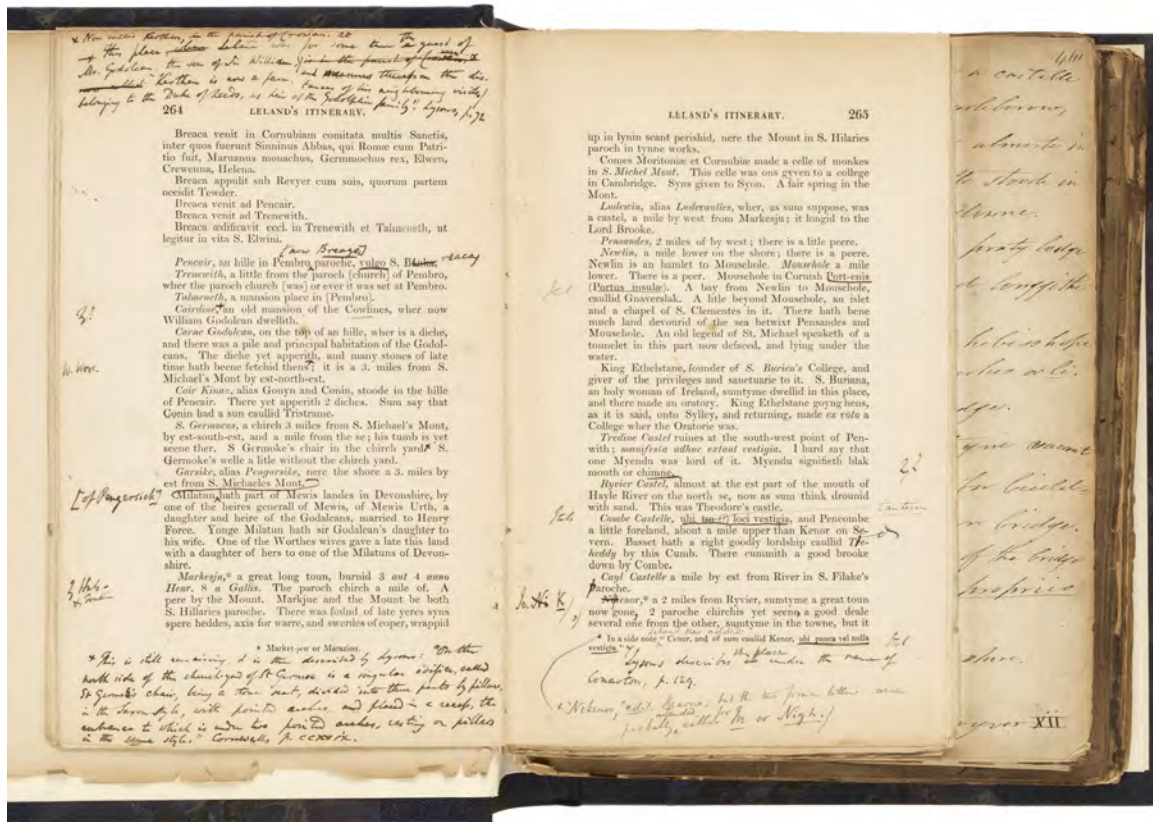 * Now called Kerthen, in the parish of Crowan. at
this place, Leland was for some time the guest of
Mr. Godolcan, the son of Sir William,
"Kerthen is now a farm,
belonging to the Duke of Leeds, as heir of the Godolphin family." Lysons, p. 72
264 LELAND'S ITINERARY.
Breaca venit in Cornubiam comitata multis Sanctis,
inter quos fuerunt Sinninus Abbas, qui Romæ cum Patri-
tio fuit, Maruanus monachus, Germmochus rex, Elwen,
Crewenna, Helena.
Breaca appulit sub Revyer cum suis, quorum partem
occidit Tewder.
Breaca venit ad Pencair.
Breaca venit ad Trenewith.
Breaca ædificavit eccl. in Trenewith et Talmeneth, ut
legitur in vita S. Elwini.
[now Breage]
Pencair, an hille in Pembro paroche, vulgo S. Banka. reacay
Trenewith, a little from the paroch [church] of Pembro,
wher the paroch church [was] or ever it was set at Pembro.
Talmeneth, a mansion place in [Pembro].
Cairdine, an old mansion of the Cowlines, wher now
William Godolcan dwellith.
Carne Godolcan, on the top of an hille, wher is a diche,
and there was a pile and principal habitation of the Godol-
cans. The diche yet apperith, and many stones of late
time hath beene fetchid thens; it is a 3. miles from S.
W. Worc.
Michael's Mont by est-north-est.
Cair Kinan, alias Gonyn and Conin, stoode in the hille
of Pencair. There yet apperith 2 diches. Sum say that
Conin had a sun caullid Tristrame.
S. Germocus, a chirch 3 miles from S. Michael's Mont,
by est-south-est, and a mile from the se; his tumb is yet
scene ther. S Germoke's chair in the chirch yard* S.
Germoke's welle a litle without the chirch yard.
Garsike, alias Pengarsike, nere the shore a 3. miles by
est from S. Michaeles Mont.
[of Pengersick]
Milatun hath part of Mewis landes in Devonshire, by
one of the heires generall of Mewis, of Mewis Urth, a
daughter and heire of the Godalcans, married to Henry
Force. Yonge Milatun hath sir Godalcan's daughter to
his wife. One of the Worthes wives gave a late this land
with a daughter of hers to one of the Milatuns of Devon-
shire.
Markesju,* a great long toun, burnid 3 aut 4 anno
Henr. 8 a Gallis. The paroch chirch a mile of. A
pere by the Mount. Markjue and the Mount be both
S. Hillaries paroche. There was found of late yeres syns
spere heddes, axis for warre, and swerdes of coper, wrappid
* Market-jew or Marazion.
* This is still remaining. it is thus described by Lysons: "On the
north side of the churchyard of St Germoe is a singular edifice, called
St Germoe's chair, being a stone seat, divided into three parts by pillars,
in the Saxon style, with pointed arches, and placed in a recess, the
entrance to which is under two pointed arches, resting on pillars
in the same style." Cornwall, p. CCXXIX.
LELAND'S ITINERARY. 265
up in lynin scant perishid, nere the Mount in S. Hilaries
paroch in tynne works.
Comes Moritoniæ et Cornubiæ made a celle of monkes
in S. Michel Mont. This celle was ons gyven to a college
in Cambridge. Syns given to Syon. A fair spring in the
Mont.
Ludewin, alias Ludevaulles, wher, as sum suppose, was
a castel, a mile by west from Markesju; it longid to the
Lord Brooke.
Pensandes, 2 miles of by west; there is a litle peere.
Newlin, a mile lower on the shore; there is a peere.
Newlin is an hamlet to Mousehole. Mousehole a mile
lower. There is a peer. Mousehole in Cornish Port-enis
(Portus insulæ). A bay from Newlin to Mousehole,
caullid Gnaverslak. A litle beyond Mousehole, an islet
and a chapel of S. Clementes in it. There hath bene
much land devourid of the sea betwixt Pensandes and
Mousehole. An old legend of St. Michael speaketh of a
tounelet in this part now defaced, and lying under the
water.
King Ethelstane, founder of S. Burien's College, and
giver of the privileges and sanctuarie to it. S. Buriana,
an holy woman of Ireland, sumtyme dwellid in this place,
and there made an oratory. King Ethelstane goyng hens,
as it is said, onto Sylley, and returning, made ex voto a
College wher the Oratorie was.
Tredine Castel ruines at the south-west point of Pen-
with; manifesta adhuc extant vestigia. I hard say that
one Myendu was lord of it. Myendu signifieth blak
mouth or chimne.
Ryvier Castel, almost at the est part of the mouth of
Hayle River on the north se, now as sum think drounid
with sand. This was Theodore's castle.
Combe Castelle, ubi tan (?) loci vestigia, and Pencombe
a little foreland, about a mile upper than Kenor on Se-
vern. Basset hath a right goodly lordship caullid Tre-
heddy by this Cumb. There cummith a good brooke
down by Combe.
Cayl Castelle a mile by est from River in S. Filake's
Paroche.
Nikenor,* a 2 miles from Ryvier, sumtyme a great toun
now gone, 2 paroche chirchis yet seene a good deale
several one from the other, sumtyme in the towne, but it
* In a side note, Cenor, and of sum caullid Kenor, ubi pauca vel nulla
vestigia.
Lysons describes this place under the name of
Conarton, p. 129.
* "Nikenor," edit. Hearne; but the two former letters were
probably intended for In or Nigh.
a castelle
almoste in
stonde in
praty lodge
vacant
bridge.
of the bridge
XII